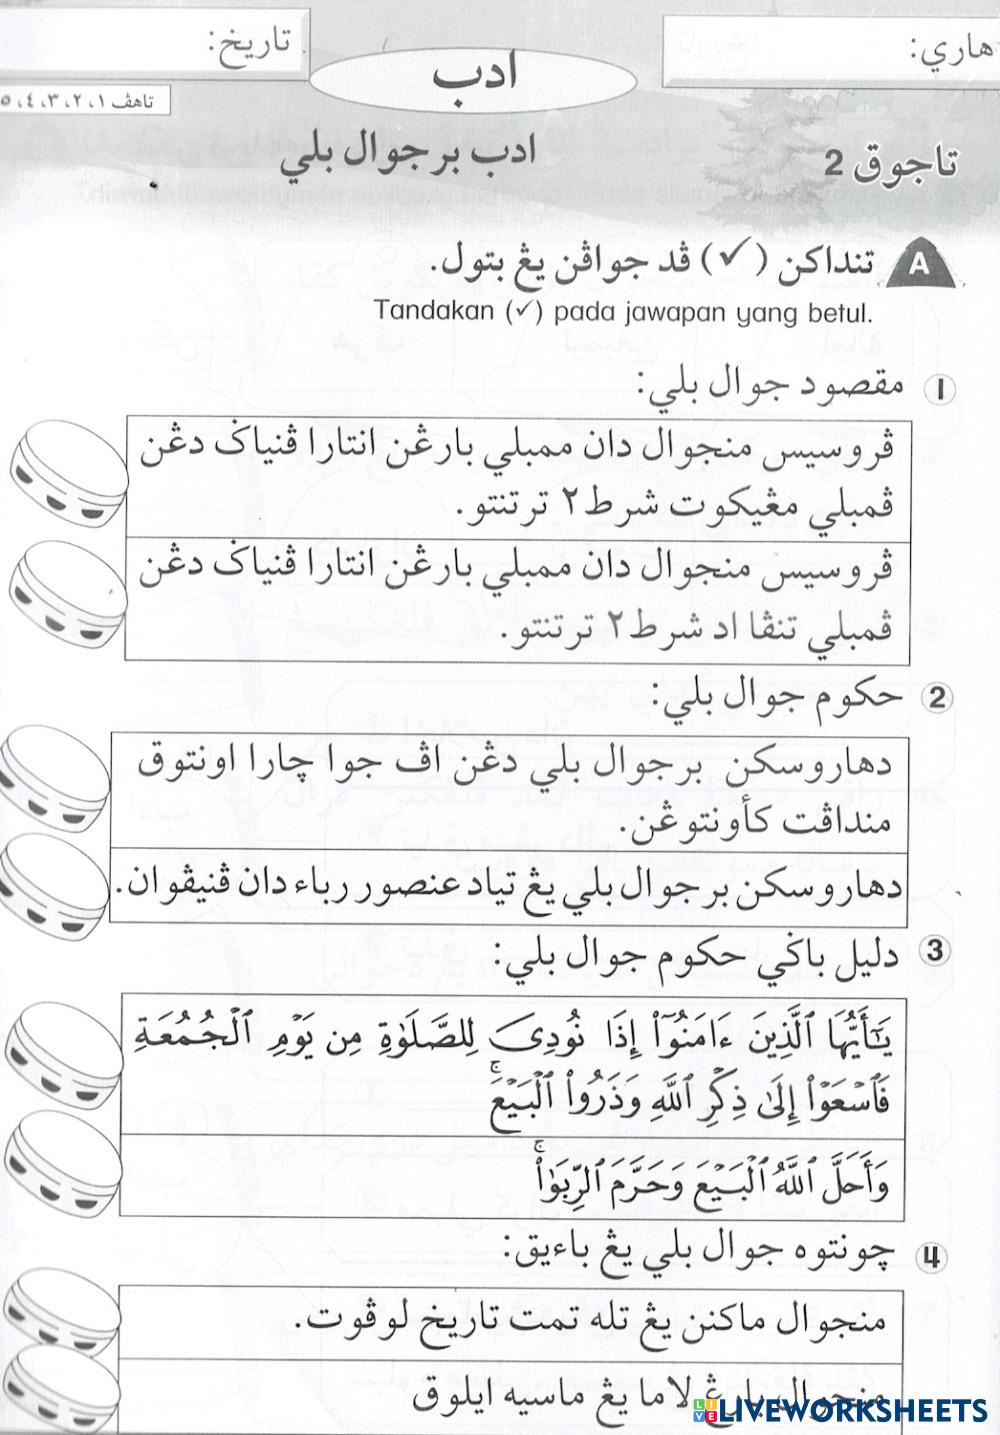 هاري:
تاريخ:
ادب
تاهڤ ١، ٢، ٣، ٤، ٥
تاجوق 2
ادب برجوال بلي
A تنداکن (✓) ڤد جواڤن يڠ بتول.
Tandakan (✓) pada jawapan yang betul.
1 مقصود جوال بلي:
ڤروسيس منجوال دان ممبلي بارڠن انتارا ڤنياݢ دڠن
ڤمبلي مڠيکوت شرط٢ ترتنتو.
ڤروسيس منجوال دان ممبلي بارڠن انتارا ڤنياݢ دڠن
ڤمبلي تنڤا اد شرط٢ ترتنتو.
2 حکوم جوال بلي:
دهاروسکن برجوال بلي دڠن اڤ جوا چارا اونتوق
منداڤت کأونتوڠن.
دهاروسکن برجوال بلي يڠ تياد عنصور رباء دان ڤنيڤوان.
3 دليل باݢي حکوم جوال بلي:
يَـٰٓأَيُّهَا ٱلَّذِينَ ءَامَنُوٓا۟ إِذَا نُودِىَ لِلصَّلَوٰةِ مِن يَوْمِ ٱلْجُمُعَةِ
فَٱسْعَوْا۟ إِلَىٰ ذِكْرِ ٱللَّهِ وَذَرُوا۟ ٱلْبَيْعَ ۚ
وَأَحَلَّ ٱللَّهُ ٱلْبَيْعَ وَحَرَّمَ ٱلرِّبَوٰا۟ ۚ
4 چونتوه جوال بلي يڠ باءيق:
منجوال ماکنن يڠ تله تمت تاريخ لوڤوت.
منجوال بارڠ لاما يڠ ماسيه ايلوق
LIVEWORKSHEETS